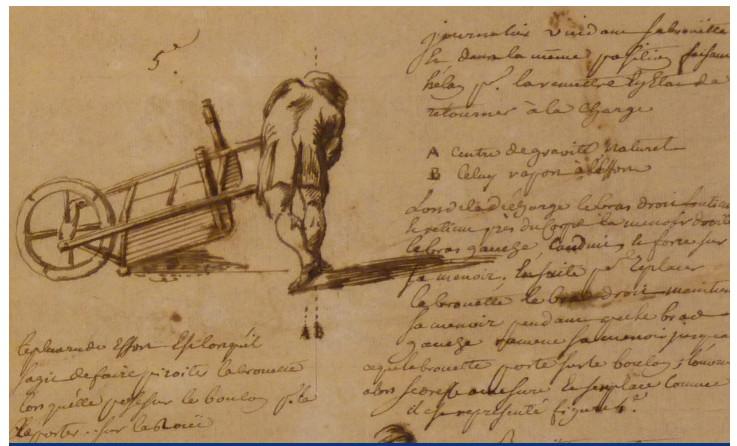 5e.
journalier vuidant sa brouëtte
Et dans la même position faisant
p.r la remettre En Etat de
retourner à la Charge
A Centre de gravité Naturel
B Celuy rapport à l'effort
Lors de la décharge le bras droit soutien
le retien près du Corps la menoir droite
le bras gauche, Conduit, le force sur
sa menoir, Ensuite p.r replacer
la brouette le bras droit maintien
sa menoir pendant que le bras
gauche ramene sa menoir jusqu'a
ce que la brouette porte sur le boulon,
alors se dresse a mesure, Se replace Comme
il est représenté figure 4.e
Effort Est lorsqu'il
s'agit de faire piroiter la brouette
lors quelle pese sur le boulon p.r la
Reporter sur la Roüe
A B